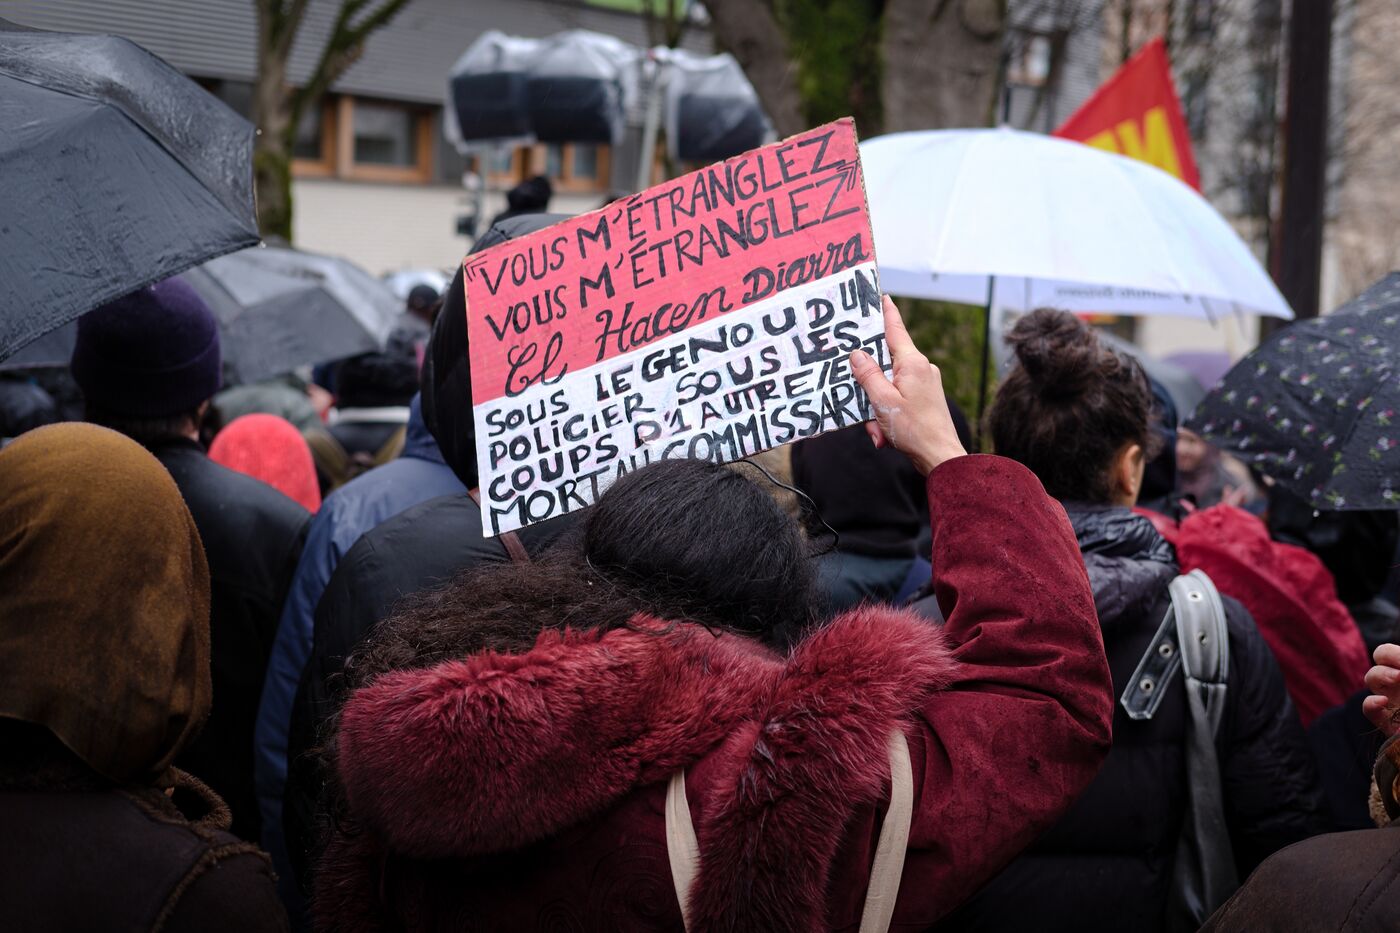 "VOUS M'ÉTRANGLEZ
VOUS M'ÉTRANGLEZ"
El Hacen Diarra
SOUS LE GENOU D'UN
POLICIER SOUS LES
COUPS D'1 AUTRE/EST
MORT AU COMMISSARIA